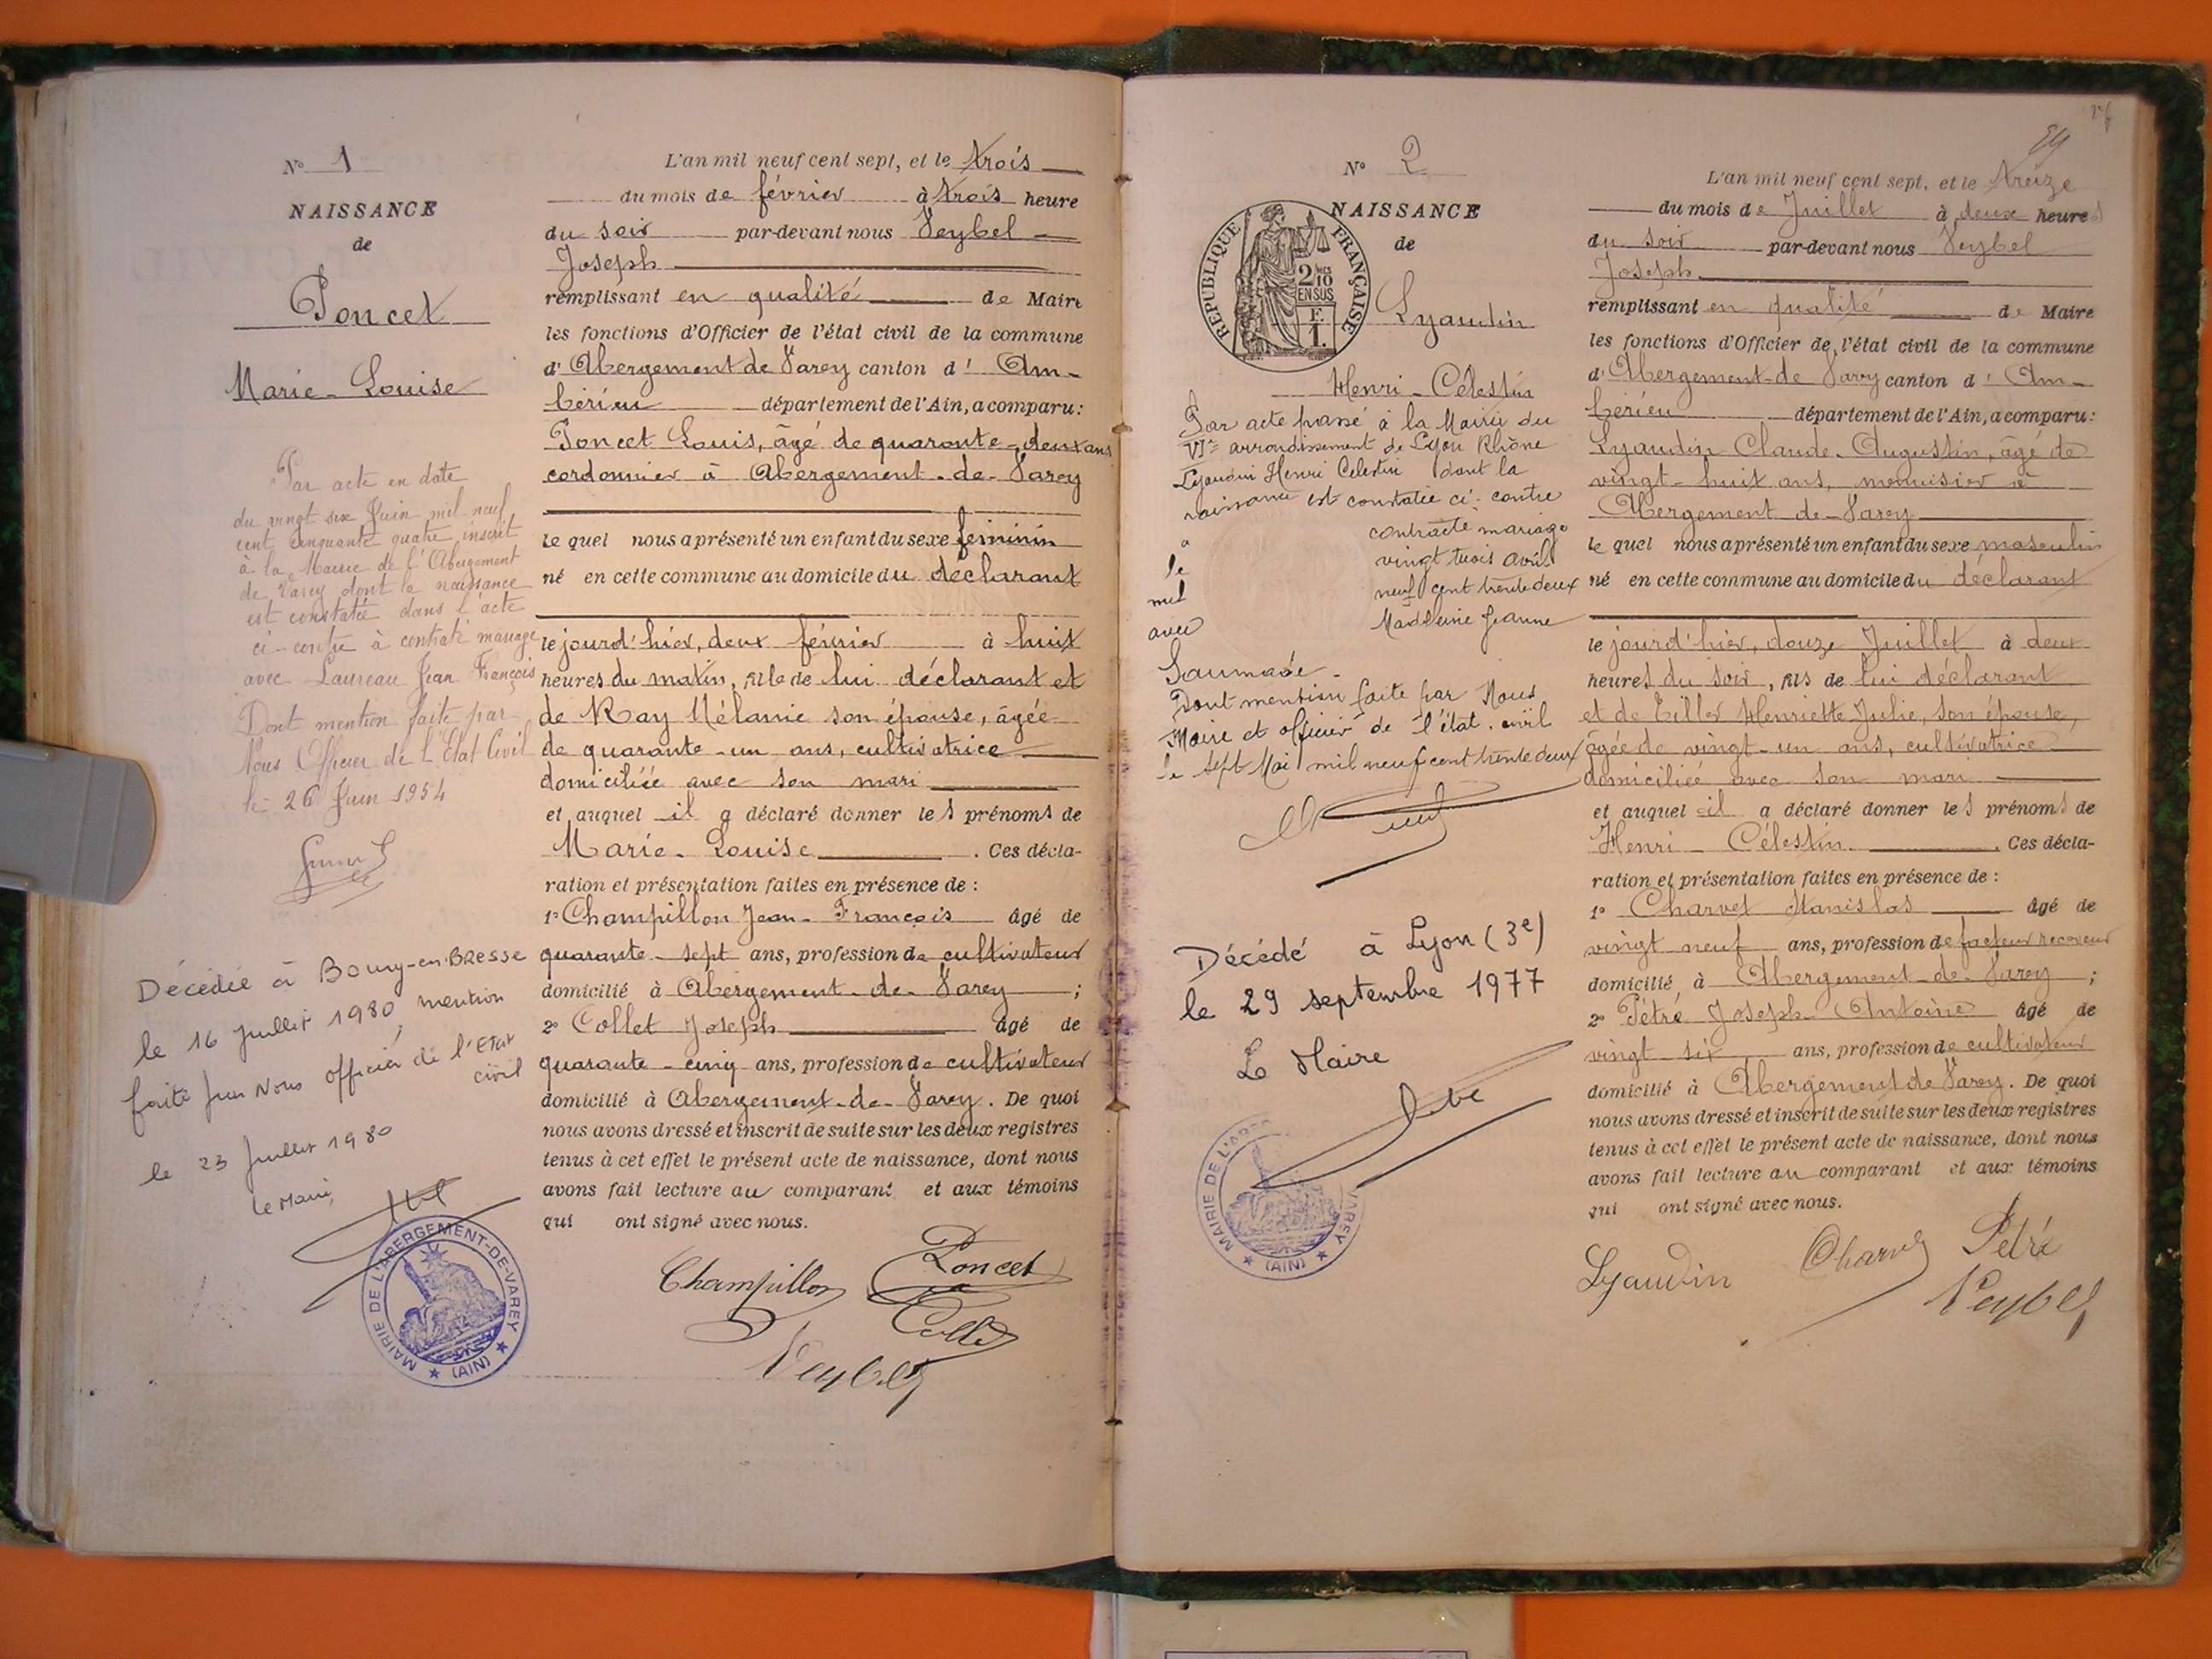 N° 1
NAISSANCE
de
Poncet
Marie-Louise
Par acte en date
du vingt six Juin mil neuf
cent cinquante quatre inscrit
à la Mairie de l'Abergement
de Varey dont la naissance
est constatée dans l'acte
ci-contre à contraté mariage
avec Laureau Jean François
Dont mention faite par
Nous Officier de l'Etat Civil
le 26 Juin 1954
Décédée à Bourg-en-Bresse
le 16 Juillet 1980, mention
faite par Nous officier de l'Etat
civil
le 23 Juillet 1980
Le Maire,
MAIRIE DE L'ABERGEMENT-DE-VAREY
★ (AIN) ★
L'an mil neuf cent sept, et le trois
du mois de février à trois heure
du soir par-devant nous Veybel
Joseph
remplissant en qualité de Maire
les fonctions d'Officier de l'état civil de la commune
d'Abergement de Varey canton d'Am-
bérieu département de l'Ain, a comparu :
Poncet Louis, âgé de quarante-deux ans
cordonnier à Abergement-de-Varey
le quel nous a présenté un enfant du sexe féminin
né en cette commune au domicile du déclarant
le jourd'hier, deux février à huit
heures du matin, fille de lui déclarant et
de Ray Mélanie son épouse, âgée
de quarante-un ans, cultivatrice
domiciliée avec son mari
et auquel il a déclaré donner les prénoms de
Marie-Louise. Ces décla-
ration et présentation faites en présence de :
1° Champillon Jean-François âgé de
quarante-sept ans, profession de cultivateur
domicilié à Abergement-de-Varey ;
2° Collet Joseph âgé de
quarante-cinq ans, profession de cultivateur
domicilié à Abergement-de-Varey. De quoi
nous avons dressé et inscrit de suite sur les deux registres
tenus à cet effet le présent acte de naissance, dont nous
avons fait lecture au comparant et aux témoins
qui ont signé avec nous.
Champillon Poncet
Collet
Veybel
N° 2
NAISSANCE
de
RÉPUBLIQUE FRANÇAISE
2/10
EN SUS
F.
1.
Lyaudin
Henri-Célestin
Par acte passé à la Mairie du
VIe arrondissement de Lyon Rhône
Lyaudin Henri Celestin dont la
naissance est constatée ci-contre
a contracté mariage
le vingt trois avril
mil neuf cent trente deux
avec Madeleine Jeanne
Saumade.
Dont mention faite par Nous
Maire et officier de l'état-civil
le sept Mai mil neuf cent trente deux
Décédé à Lyon (3e)
le 29 septembre 1977
Le Maire
MAIRIE DE L'ABER VAREY
★ (AIN) ★
L'an mil neuf cent sept, et le treize
du mois de Juillet à deux heures
du soir par-devant nous Veybel
Joseph
remplissant en qualité de Maire
les fonctions d'Officier de l'état civil de la commune
d'Abergement-de Varey canton d'Am-
bérieu département de l'Ain, a comparu :
Lyaudin Claude-Augustin, âgé de
vingt-huit ans, menuisier à
Abergement-de-Varey
le quel nous a présenté un enfant du sexe masculin
né en cette commune au domicile du déclarant
le jourd'hier, douze Juillet à deux
heures du soir, fils de lui déclarant
et de Henriette Julie, son épouse,
âgée de vingt-un ans, cultivatrice
domiciliée avec son mari
et auquel il a déclaré donner les prénoms de
Henri-Célestin. Ces décla-
ration et présentation faites en présence de :
1° Charvet Stanislas âgé de
vingt neuf ans, profession de facteur receveur
domicilié à Abergement-de-Varey ;
2° Pétré Joseph-Antoine âgé de
vingt-six ans, profession de cultivateur
domicilié à Abergement de Varey. De quoi
nous avons dressé et inscrit de suite sur les deux registres
tenus à cet effet le présent acte de naissance, dont nous
avons fait lecture au comparant et aux témoins
qui ont signé avec nous.
Lyaudin Charvet Pétré
Veybel